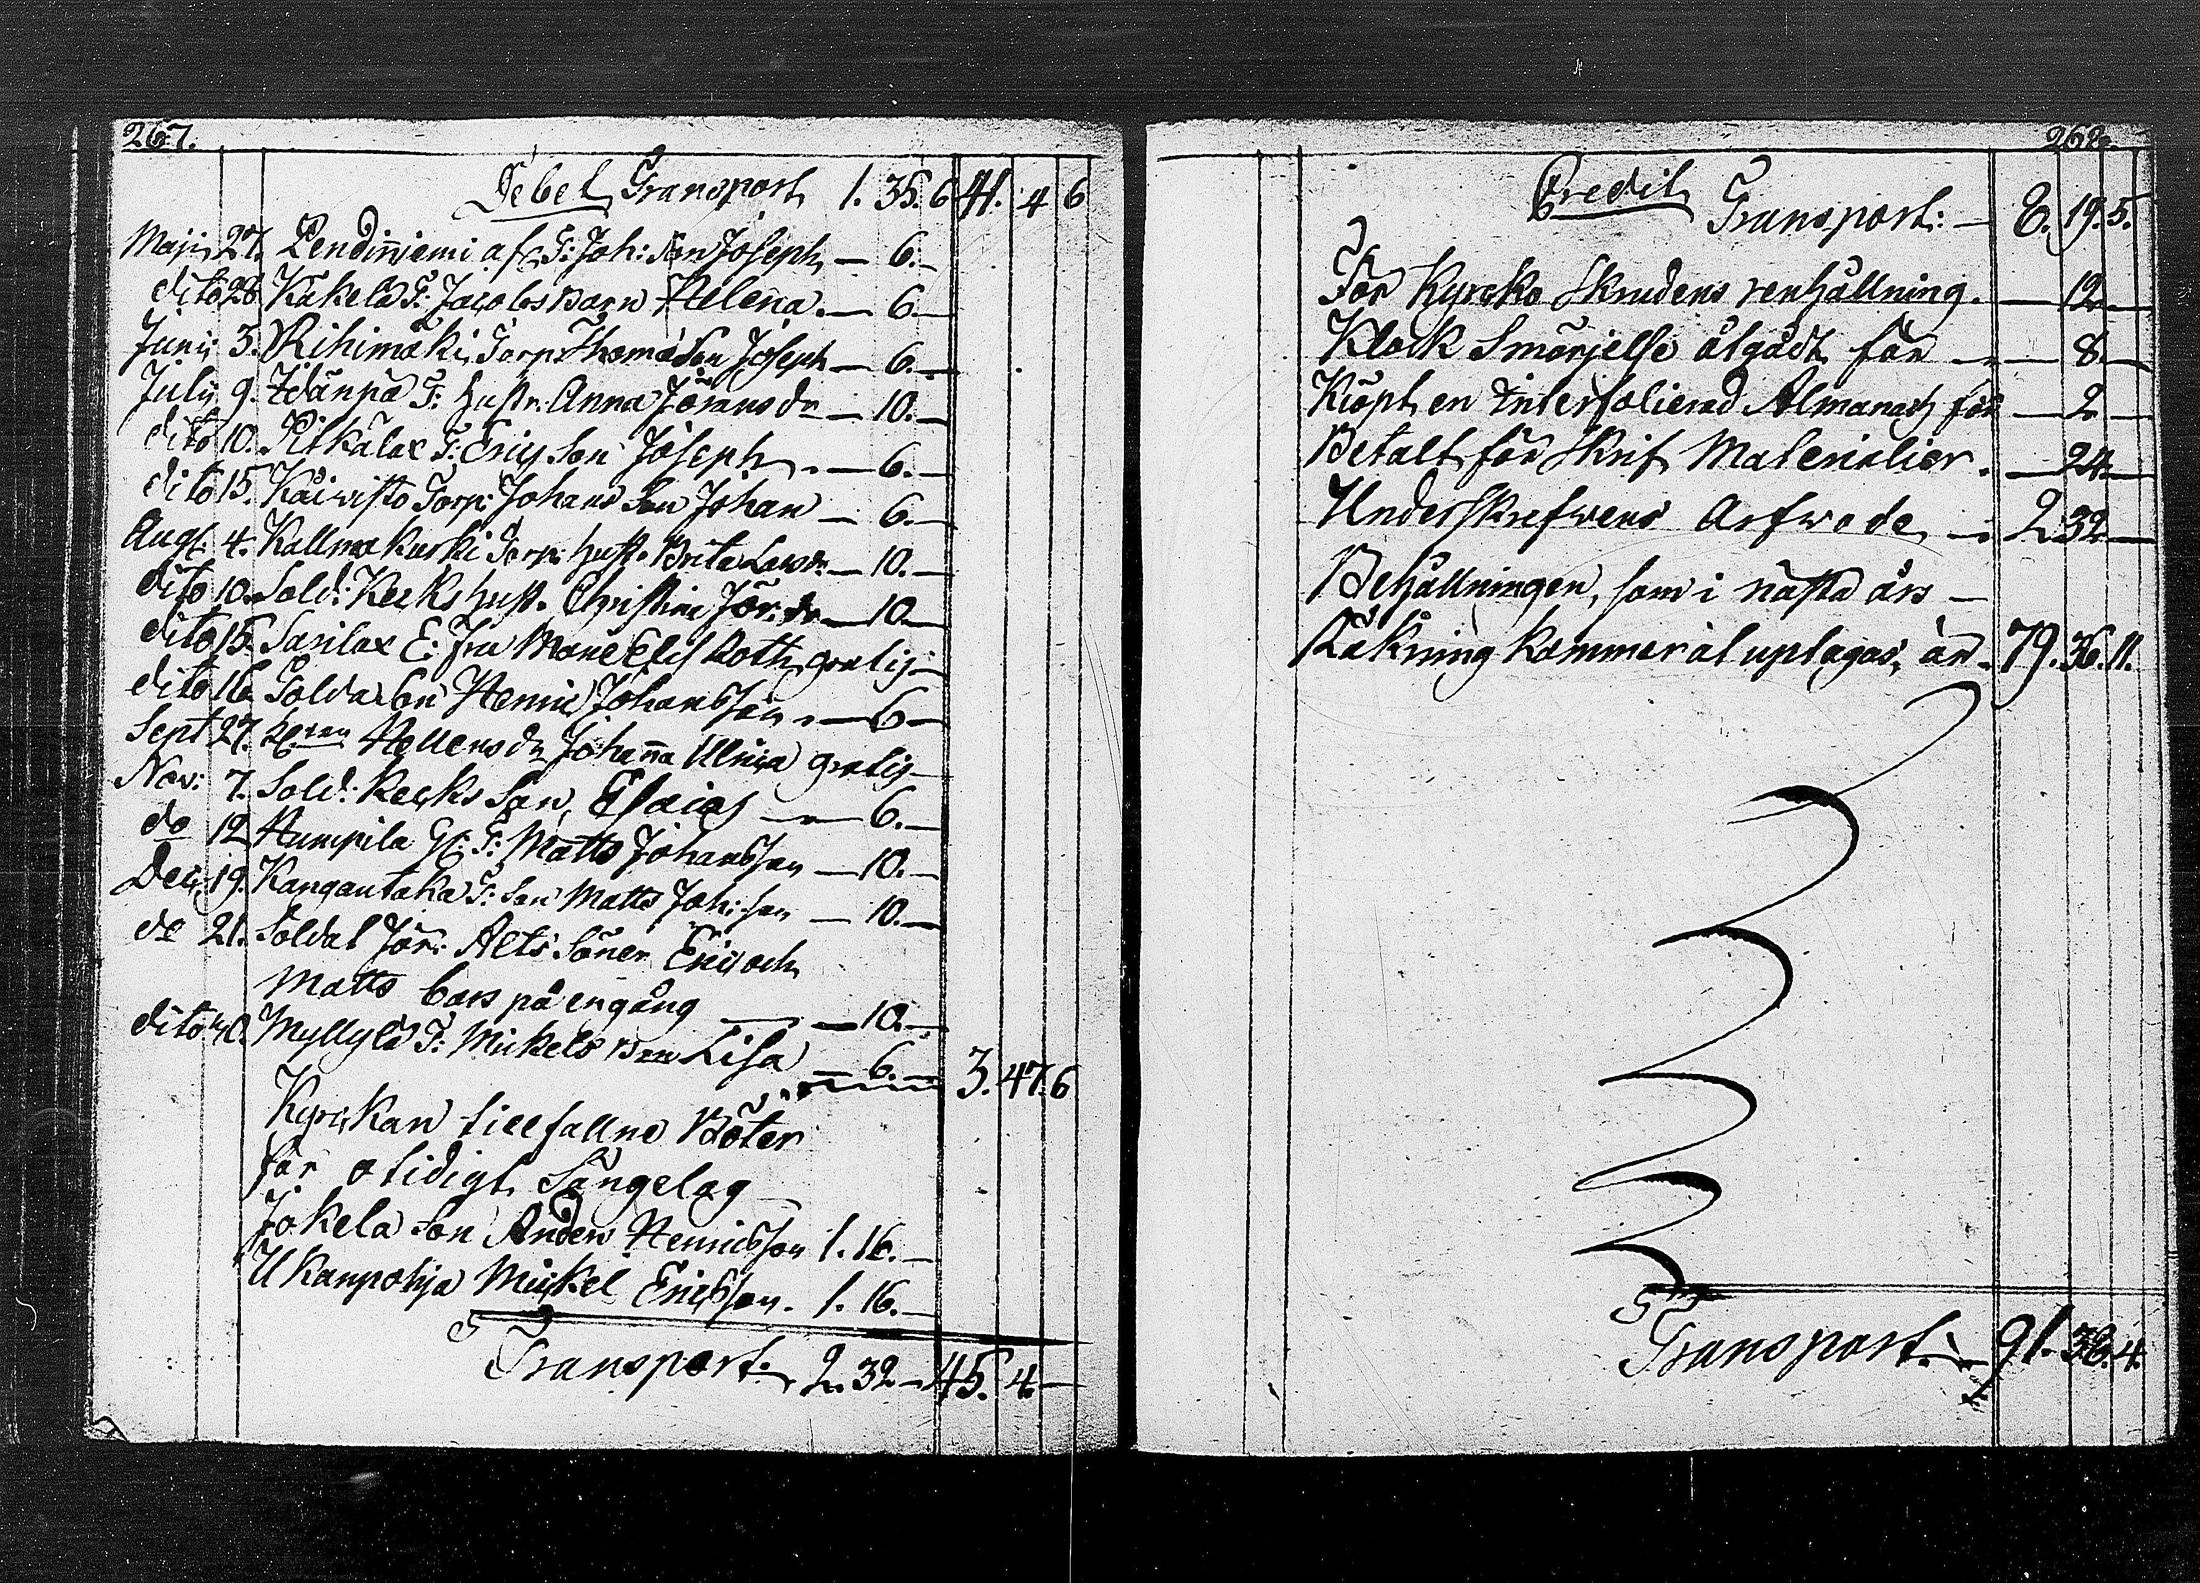 267.
Debet Transport 1. 35. 6 41. 4 6
Maji 27. Lendinjemi af. T: Joh: Son Joseph — 6. —
dito 28. Käkelä T: Jacobs Barn Helena. — 6 —
Junij 3. Rihimäki Torp: Thoma Son Joseph — 6. —
July 9. Ylänpä T: hustr: Anna Jörans dr — 10. —
dito 10. Pitkälax T: Erics Son Joseph — 6. —
dito 15. Torp: Johans Son Johan — 6. —
Augt. 4. Kallmakurki Torp: hust. Brita Lars dr — 10. —
dito 10. Sold: Kecks hust. Christina Jör: dr — 10 —
dito 15. Sarilax E: fru Roth, gratis —
dito 16. Solda Son Henric Johansson — 6 —
Sept 27. Hellens dr Johanna Ulrica gratis —
Nov: 7. Sold: Kecks Son, Esaias — 6. —
do 12 Humpila Gl: T: Matts Johansson — 10. —
Dec: 19. Kangantaka T: Son Matts Joh: son — 10. —
do 21. Soldat Jör: Alts Söner Eric och
Matts bars på en gång — 10. —
dito Myllylä T: Mickels Barn Lisa 6. — 3. 47. 6
Kyrckan tillfallne Böter
för otidigt Sängelag
Jokela Son Anders Henricsson 1. 16. —
Ukanpohja Mickel Ericsson. 1. 16. —
Transport. 2. 32 — 45. 4 —
268.
Credit
Transport: — 8. 19. 5.
För Kyrcko Skrudens renhållning. — 12 —
Klock Smörjelse åtgådt för — 8. —
Köpt en interfolierad Almanach för — 2 —
Betalt för Skrif Materialier. — 24 —
Underskrefwens Arfwode, — 2 32 —
Behållningen, som i nästa års —
Räkning kommer at uptagas, är. 79. 36. 11.
Transport. — 91. 38. 4.